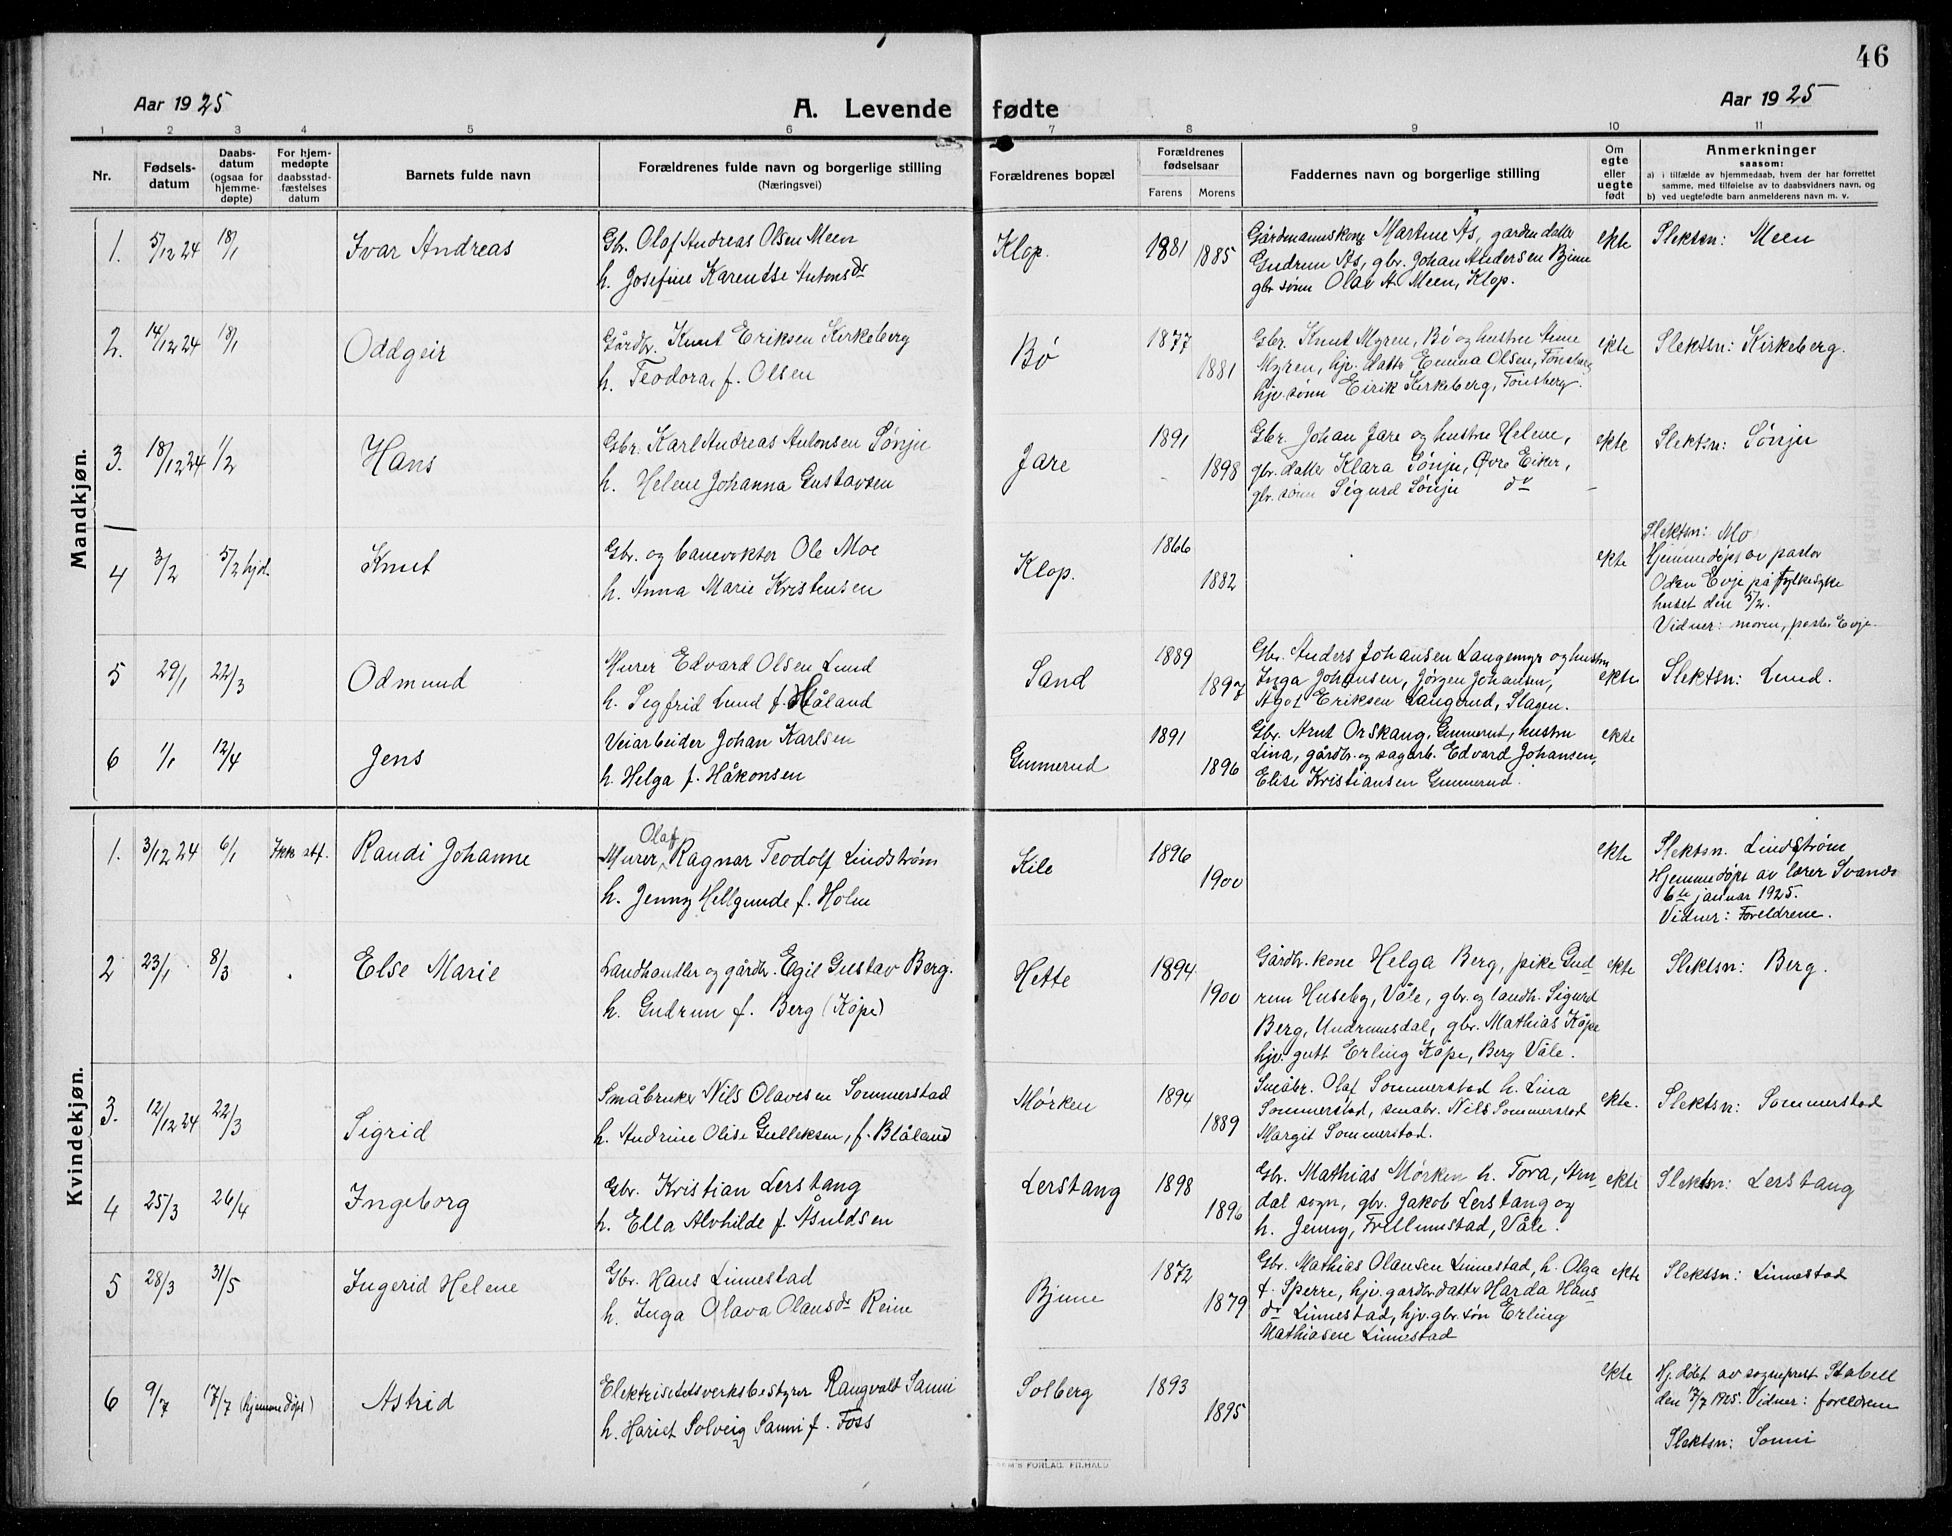 46
Aar 1925
A. Levende fødte
Aar 1925
1 2 3 4 5 6 7 8 9 10 11
Nr.
Fødsels-
datum
Daabs-
datum
(ogsaa for
hjemme-
døpte)
For hjem-
medøpte
daabsstad-
fæstelses
datum
Barnets fulde navn
Forældrenes fulde navn og borgerlige stilling
(Næringsvei)
Forældrenes bopæl
Forældrenes
fødselsaar
Farens Morens
Faddernes navn og borgerlige stilling
Om
egte
eller
uegte
født
Anmerkninger
saasom:
a) i tilfælde av hjemmedaab, hvem der har forrettet
samme, med tilføielse av to daabsvidners navn, og
b) ved uegtefødte barn anmelderens navn m. v.
Mandkjøn.
1. 5/12 24 18/1 Ivar Andreas
Gbr. Olaf Andreas Olsen Meen
h. Josefine Karentse Antonsdr
Klop. 1881 1885
Gårdmannskone Martine Ås, garden datter
Gudrun Ås, gbr. Johan Andersen Bjune
gbr sønn Olav A. Meen, Klop.
ekte Slektsn: Meen
2. 14/12 24 18/1 Oddgeir
Gårdbr. Knut Eriksen Kirkeberg
h. Teodora, f. Olsen
Bø 1877 1881
Gbr. Knut Myren, Bø og hustru Anne
Myren, hjv. datter Emma Olsen, Tønsberg
hjv. sønn Eirik Kirkeberg, Tønsberg.
ekte Slektsn: Kirkeberg.
3. 18/12 24 1/2 Hans
Gbr. Karl Andreas Antonsen Sønju
h. Helene Johanna Gustavsen
Jare 1891 1898
Gbr. Johan Jare og hustru Helene,
gbr. datter Klara Sønju, Øvre Eiker,
gbr. sønn Sigurd Sønju do
ekte Slektsn: Sønju
4 3/2 5/2 hjd. Knut
Gbr. og banevokter Ole Moe
h. Anna Marie Kristensen
Klop. 1866 1882
ekte Slektsn: Mo
Hjemmedøpt av pastor
Oden Evje på Fylkessyke
huset den 5/2.
Vidner: moren, pastor Evje.
5 29/1 22/3 Odmund
Murer Edvard Olsen Lund
h. Sigfrid Lund f. Håland
Sand 1889 1897
Gbr. Anders Johansen Langemyr og hustru
Inga Johansen, Jørgen Johansen,
Agot Eriksen Langerud, Slagen.
ekte Slektsn: Lund.
6 1/1 12/4 Jens
Veiarbeider Johan Karlsen
h. Helga f. Håkonsen
Gunnerud 1891 1896
Gbr. Arnt Orskang, Gunnerut, hustru
Lina, gårdbr. og sagarb. Edvard Johansen,
Elise Kristiansen Gunnerud.
ekte
Kvindekjøn.
1. 3/12 24 6/1 Ikke stf. Randi Johanne
Olaf
Murer, Ragnar Teodolf Lindstrøm
h. Jenny Hellgunde f. Holm
Kile 1896 1900
ekte Slektsn. Lindstrøm
Hjemmedøpt av lærer Svands
6te januar 1925.
Vidner: Foreldrene.
2 23/1 8/3 Else Marie
Landhandler og gårdbr. Egil Gustav Berg.
h. Gudrun f. Berg (Kôpe)
Hette 1894 1900
Gårdbr. kone Helga Berg, pike Gud
run Huseby, Våle, gbr. og landh. Sigurd
Berg, Undrumsdal, gbr. Mathias Kôpe
hjv. gutt Erling Kôpe, Berg Våle.
ekte Slektsn: Berg.
3. 12/12 24 22/3 Sigrid
Småbruker Nils Olavesen Sommerstad
h. Andrine Olise Gulleksen, f. Blåland
Mørken 1894 1889
Småbr. Olaf Sommerstad h. Lina
Sommerstad, småbr. Nils Sommerstad
Margit Sommerstad.
ekte. Slektsn: Sommerstad
4 25/3 26/4 Ingeborg
Gbr. Kristian Lerstang
h. Ella Alvhilde f. Asuldsen
Lerstang 1898 1896
Gbr. Mathias Mørken h. Tora, Arn
dal sogn, gbr. Jakob Lerstang og
h. Jenny, Trillumstad, Våle.
ekte Slektsn: Lerstang
5 28/3 31/5 Ingerid Helene
Gbr. Hans Linnestad
h. Inga Olava Olansdr Reine
Bjune 1872 1879
Gbr. Mathias Olansen Linnestad, h. Olga
f. Sperre, hjv. gardbr. datter Harda Hans
dr Linnestad, hjv. gbr. søn Erling
Mathiasen Linnestad
ekte Slektsn: Linnestad
6 9/7 17/7 (hjemmedøpt) Astrid
Elektrisitetsverksbestyrer Rangvald Sanni
h. Hariet Solveig Sanni f. Foss
Solberg 1893 1895
ekte Hj.døbt av sogneprest Stabell
den 17/7 1925. Vidner: foreldrene
Slektsn: Sanni
FORLAG. FR.HALD